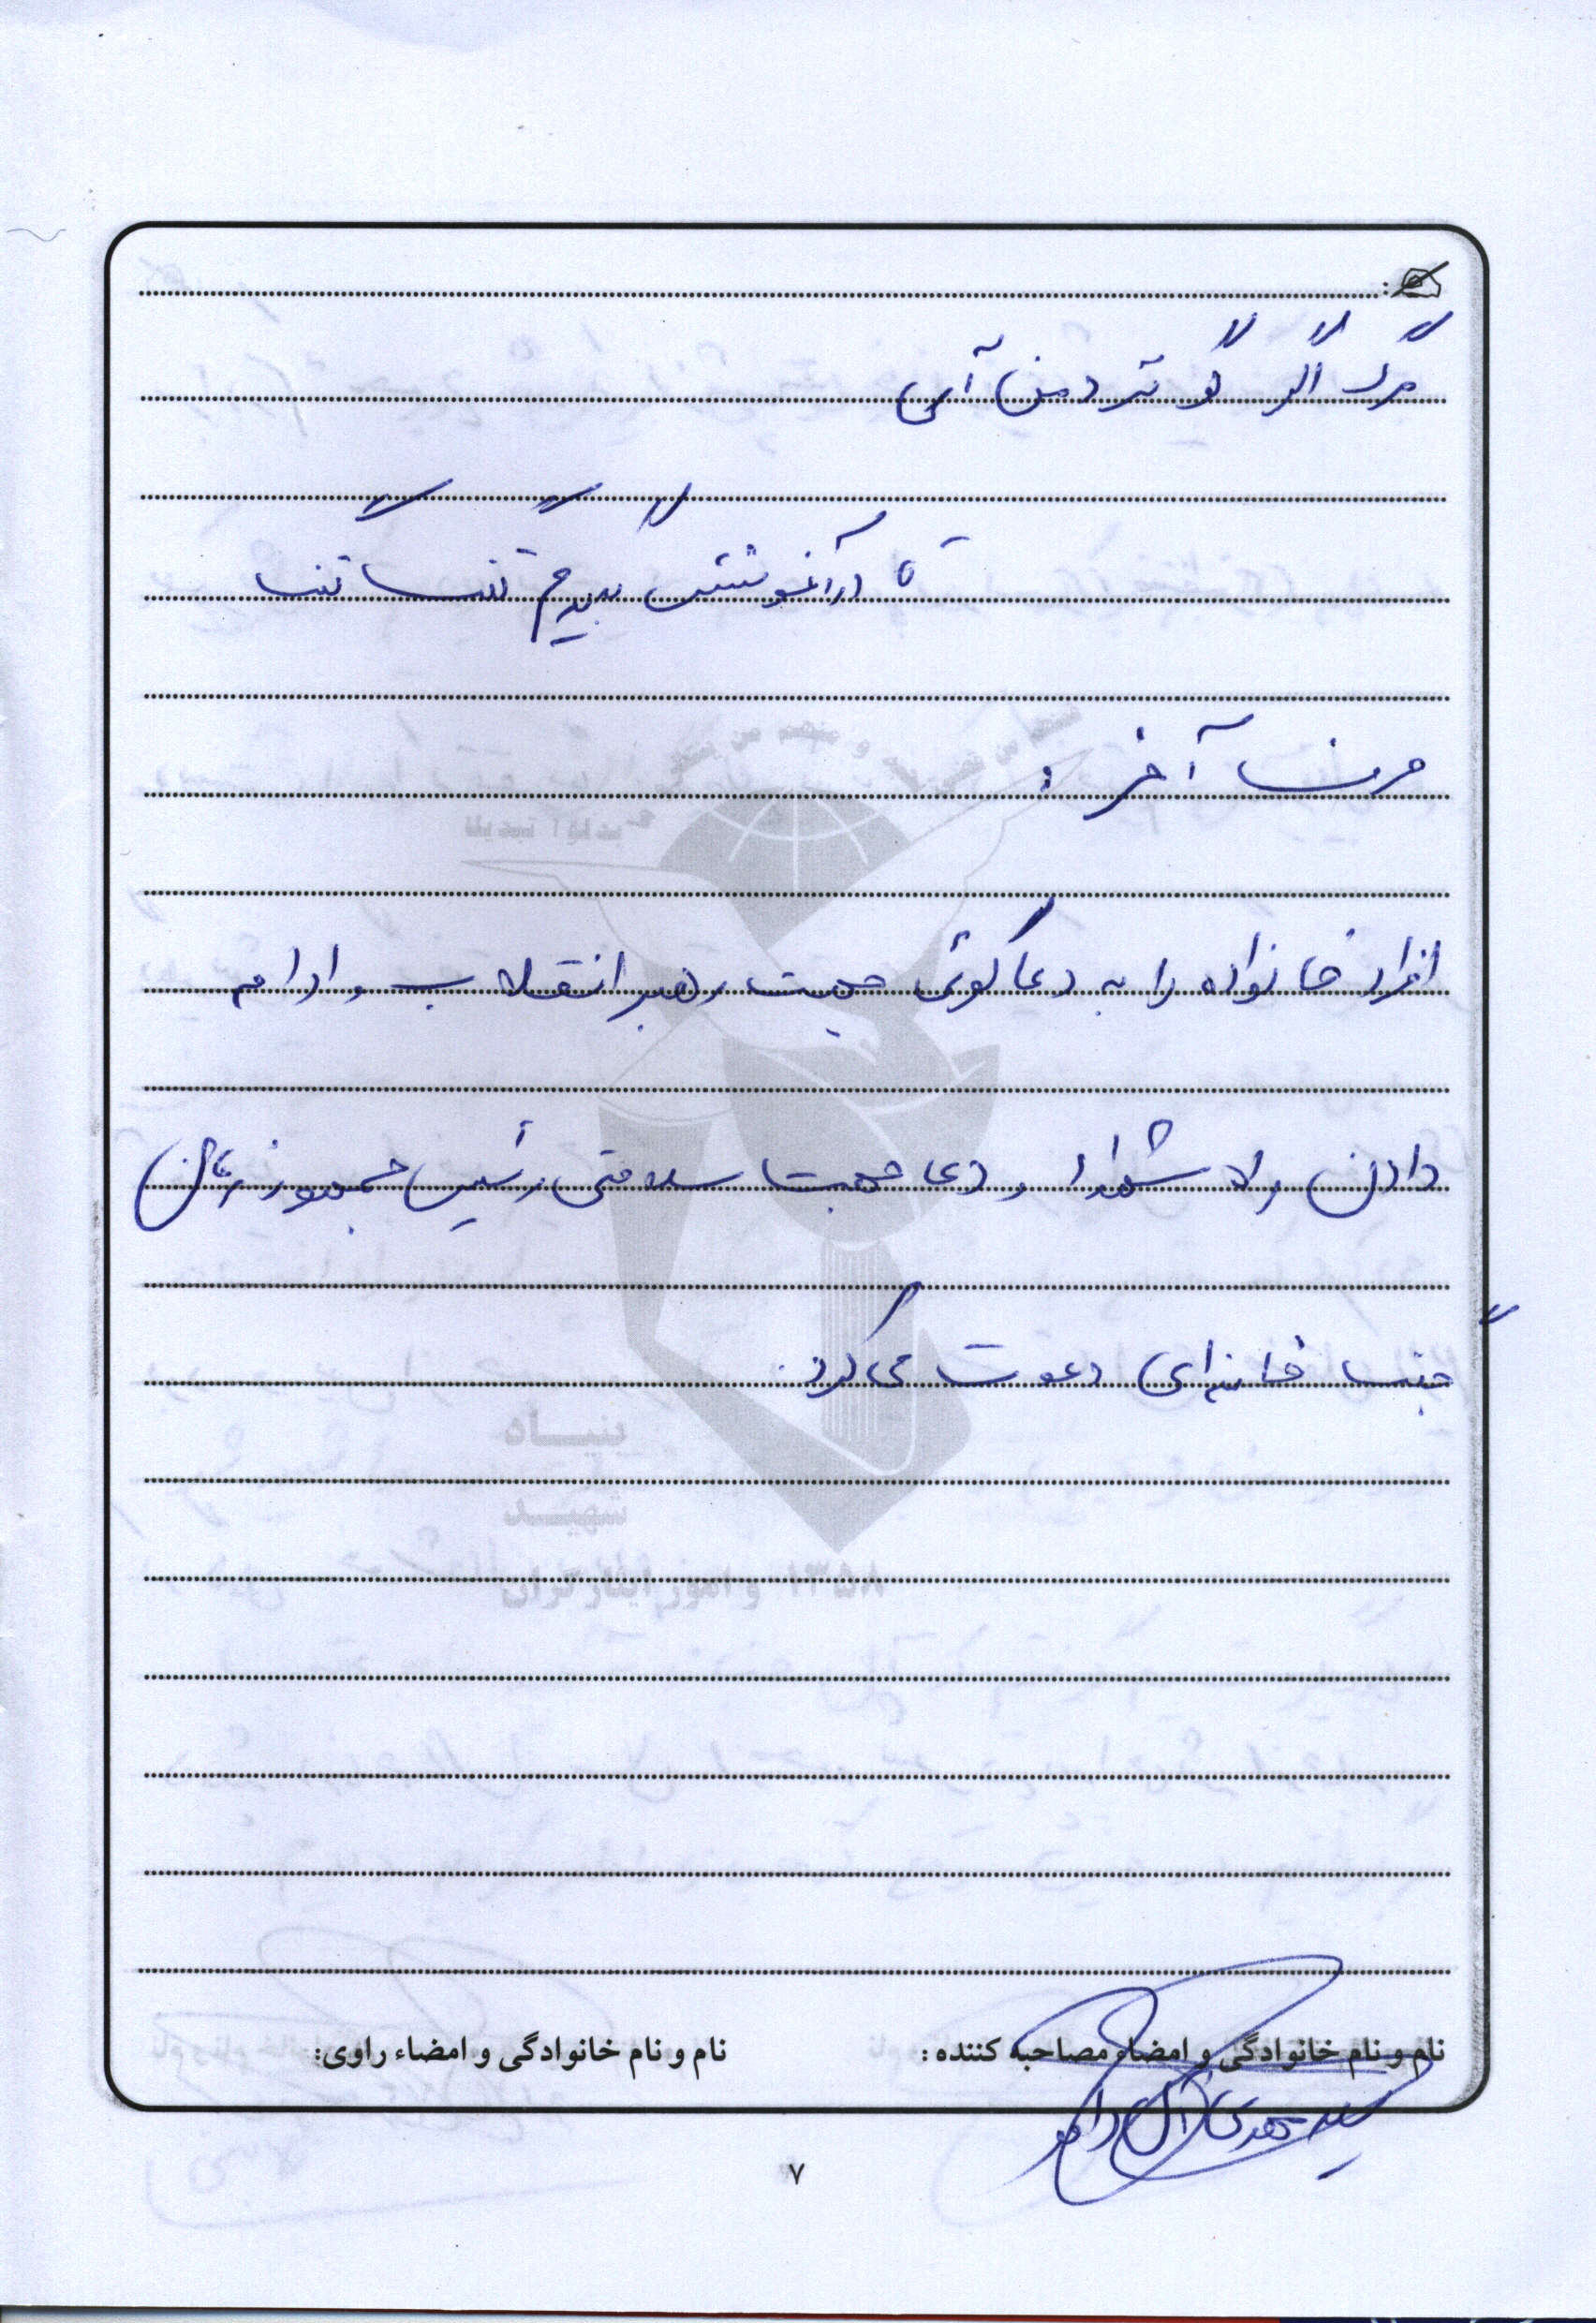 مرگ اگر گو نزد من آی
تا در آغوشش بگیرم تنگ تنگ
حرف آخر :
افراد خانواده را به دعاگوئی جهت رهبر انقلاب و ادامه
دادن راه شهدا و دعا جهت سلامتی رئیس جمهور زمان
جنگ خامنه‌ای دعوت می‌کرد.
بنیاد
شهید
و امور ایثارگران ۱۳۵۸
نام و نام خانوادگی و امضاء مصاحبه کننده :
نام و نام خانوادگی و امضاء راوی:
سید مهدی آل داود
۷